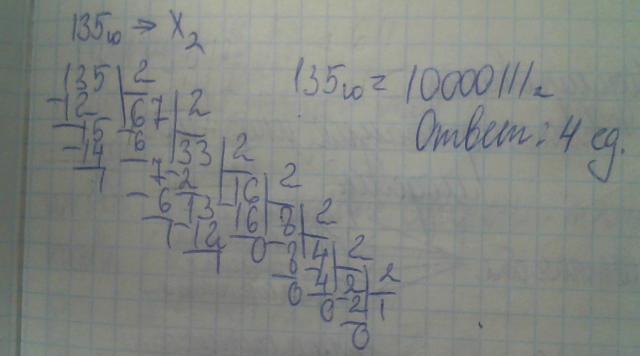 135₁₀ → X₂
135₁₀ = 10000111₂
Ответ: 4 ед.
135 | 2
-12 | 67 | 2
15 -6 | 33 | 2
-14 7 -2 | 16 | 2
1 -6 13 -16 | 8 | 2
1 -12 0 -8 | 4 | 2
1 0 -4 | 2 | 2
0 -2 | 1
0